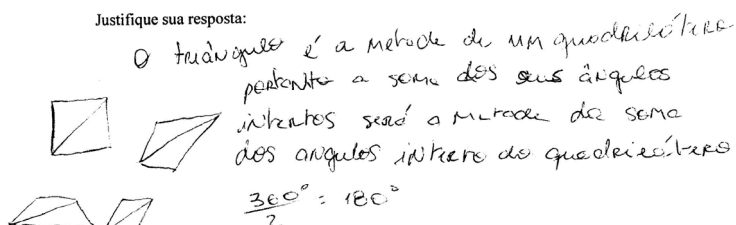 Justifique sua resposta:
O triângulo é a metade de um quadrilátero
portanto a soma dos seus ângulos
internos será a metade da soma
dos angulos interno do quadrilátero
360° : 180°
2